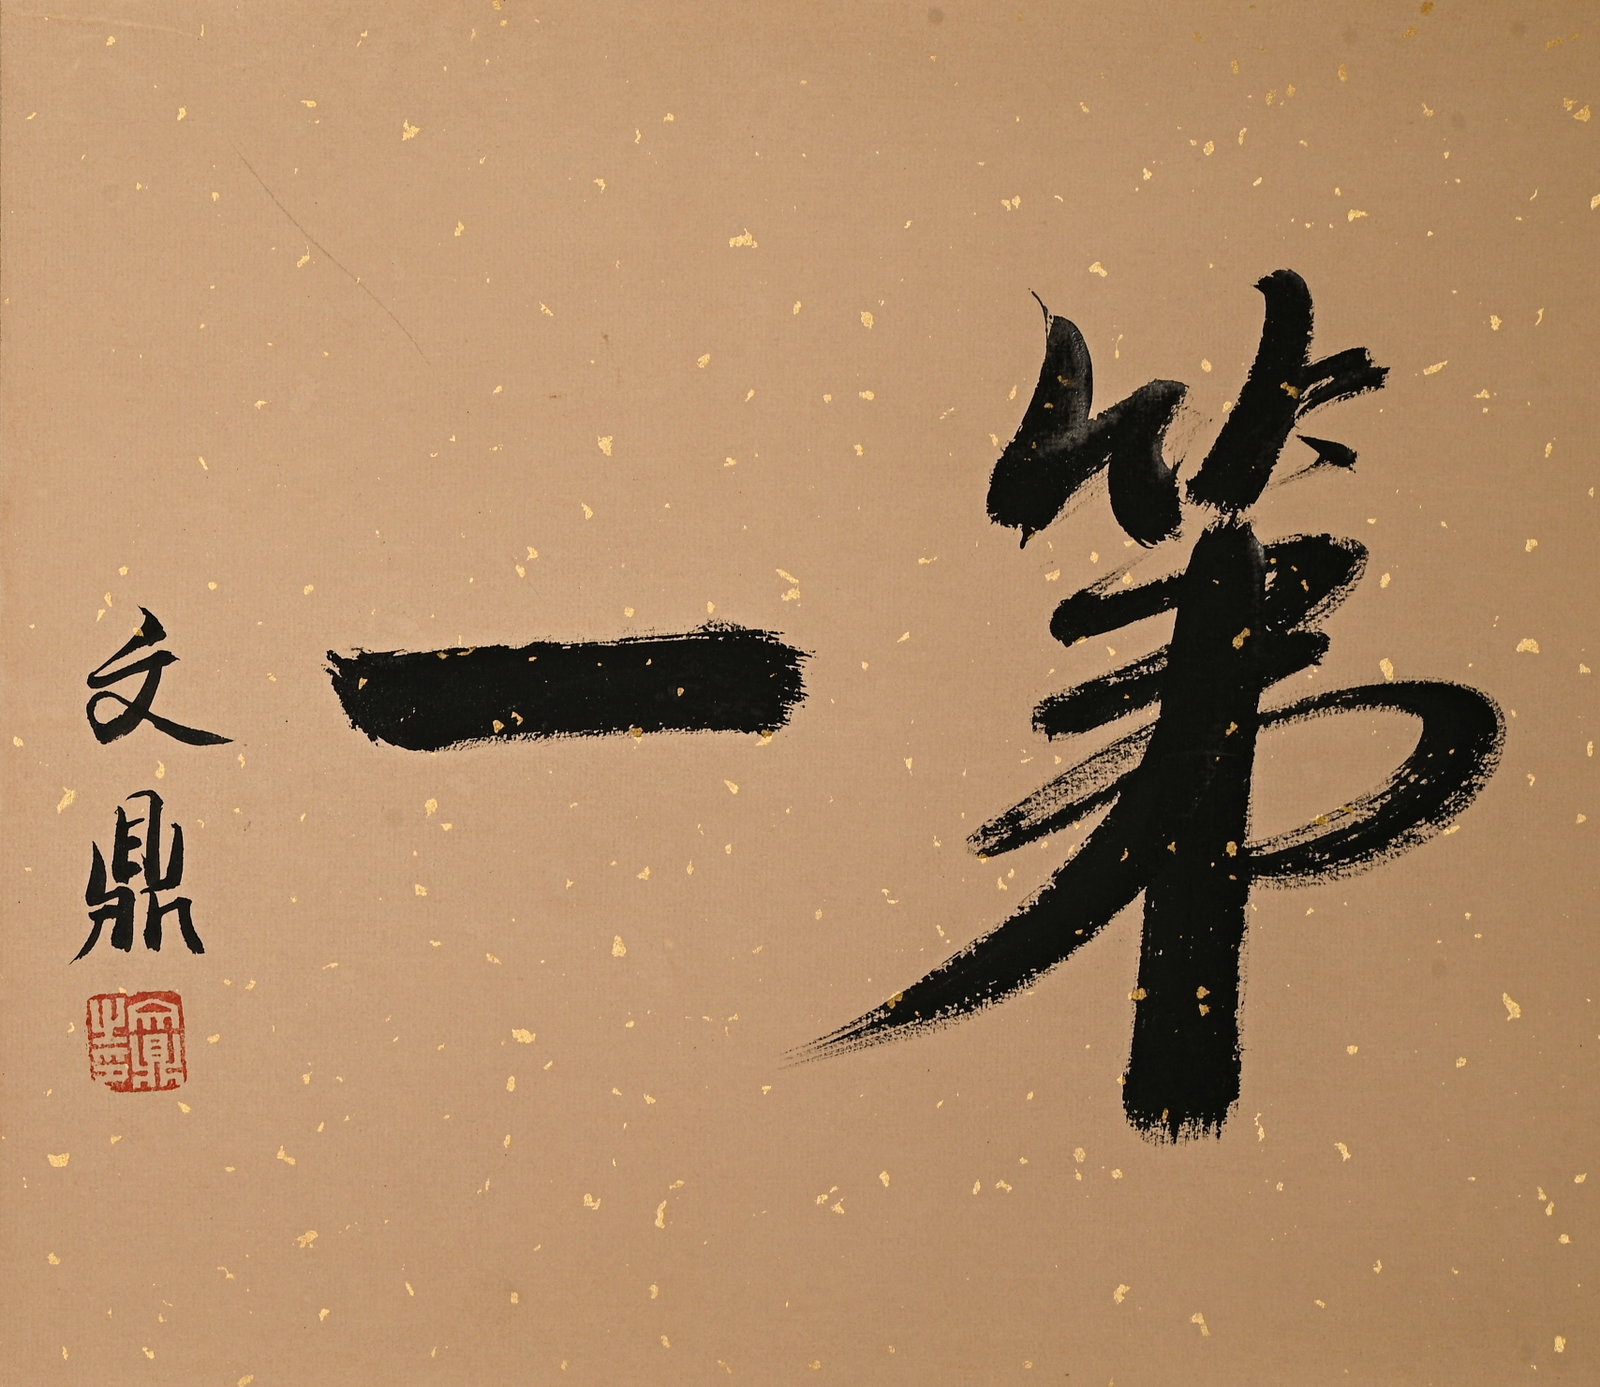 第一
文鼎